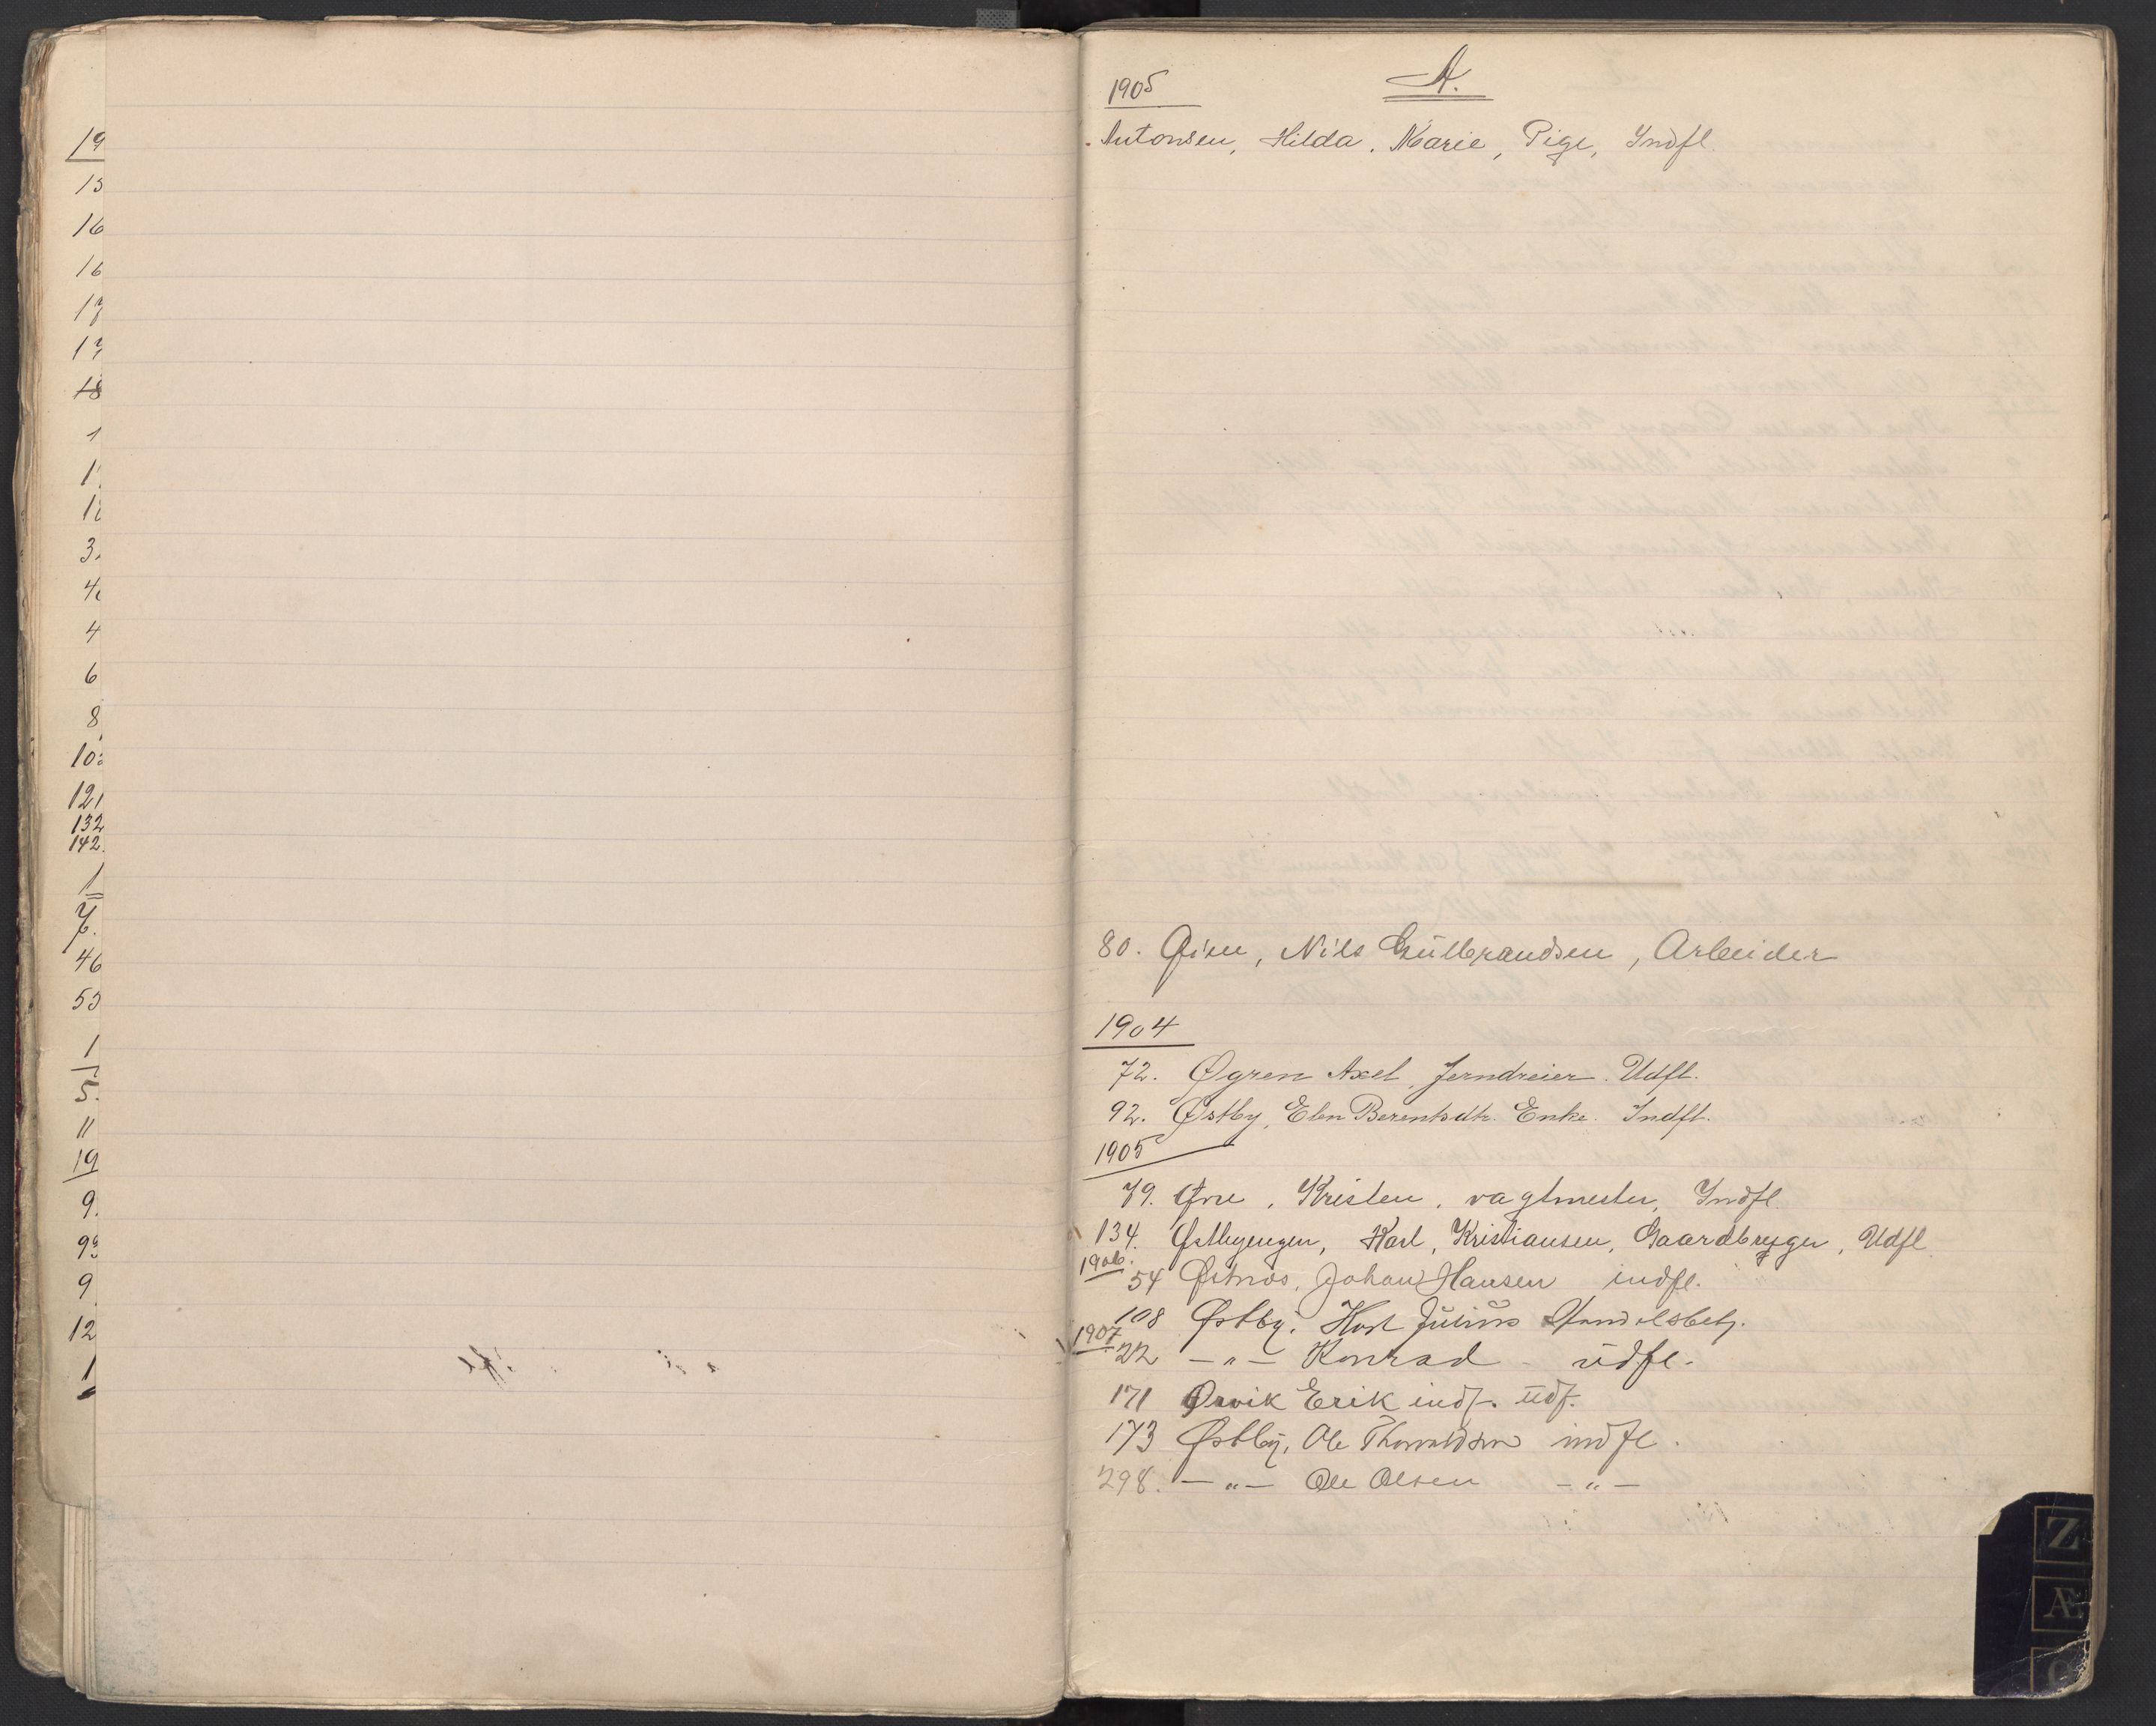 19
13
16
16
17
17
18
1
1
1
3
4
4
6
8
10
121
132
142
1
7.
46
53
1
5.
11
19
9.
99
9
12
1
1905
A.
Antonsen, Hilda, Marie, Pige, Indfl.
80. Øien, Nils Gulbrandsen, Arbeider
1904
72. Øgren Axel, Jerndreier. Udfl.
92. Østby, Elen Berentsdtr. Enke. Indfl.
1905
79. Øvre, Kristen, vagtmester, Indfl.
134. Østbyengen, Karl, Kristiansen, Gaardbryger, Udfl
1906.
54 Østmos, Johan Hansen indfl.
108 Østby, Karl Julius Handelsbetj.
1907
22 — „ — Konrad - udfl.
171 Ørvik Erik indf. udf.
173 Østby, Ole Thorvaldsen indfl.
298. — „ — Ole Olsen — „ —
Z
Æ